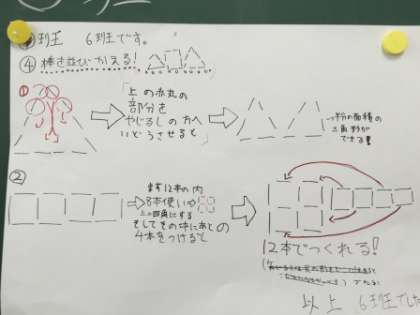 班 6班です。
④ 棒を並びかえる!
①
上の赤丸の
部分を
やじるしの方へ
いどうさせると
の面積の
三角形が
できる
②
まず12本の内
8本使い
四角にする
そしてその中にあとの
4本をつけると
12本でつくれる!
以上 6班でした